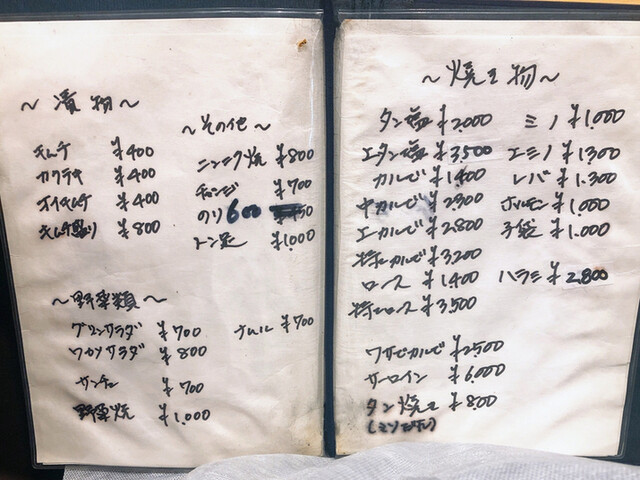 ～漬物～
キムチ ¥400
カクテキ ¥400
オイキムチ ¥400
キムチ盛り ¥800
～その他～
ニンニク焼 ¥800
チャンジャ ¥700
のり 600
トン足 ¥1,000
～野菜類～
グリーンサラダ ¥700
ワカメサラダ ¥800
サンチュ ¥700
野菜焼 ¥1,000
ナムル ¥700
～焼き物～
タン塩 ¥2,000
上タン塩 ¥3,500
カルビ ¥1,400
中カルビ ¥2,300
上カルビ ¥2,800
特上カルビ ¥3,200
ロース ¥1,400
特上ロース ¥3,500
ワサビカルビ ¥2500
サーロイン ¥6,000
タン焼き ¥800
ミノ ¥1,000
上ミノ ¥1300
レバー ¥1,300
ホルモン ¥1,000
子袋 ¥1,000
ハラミ ¥2,800